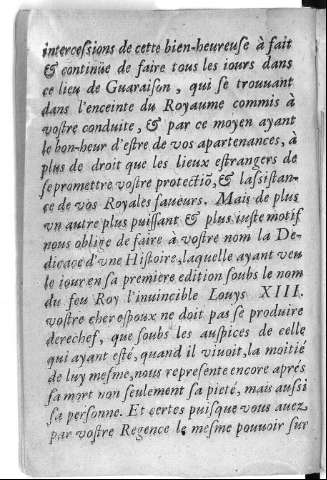 intercessions de cette bien-heureuse à fait
& continüe de faire tous les iours dans
ce lieu de Guaraison, qui se trouuant
dans l'enceinte du Royaume commis à
vostre conduite, & par ce moyen ayant
le bon-heur d'estre de vos apartenances, à
plus de droit que les lieux estrangers de
se promettre vostre protectiõ, & l'assistan-
ce de vos Royales faueurs. Mais de plus
vn autre plus puissant & plus iuste motif
nous oblige de faire à vostre nom la De-
dicace d'vne Histoire, laquelle ayant veu
le iour en sa premiere edition soubs le nom
du feu Roy l'inuincible Louys XIII.
vostre cher espoux ne doit pas se produire
derechef, que soubs les auspices de celle
qui ayant esté, quand il viuoit, la moitié
de luy mesme, nous represente encore aprés
sa mort non seulement sa pieté, mais aussi
sa personne. Et certes puisque vous auez
par vostre Regence le mesme pouuoir sur